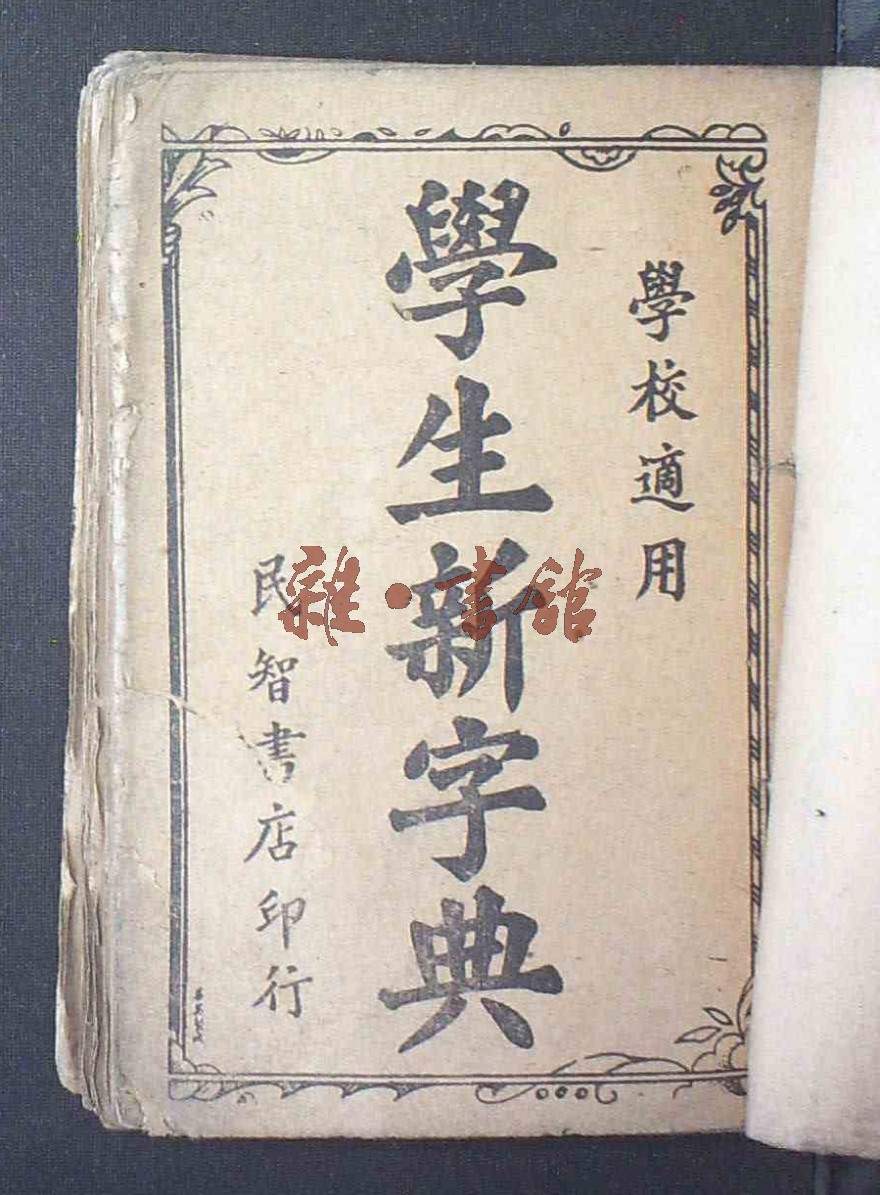 學校適用
學生新字典
民智書店印行
雜·書館